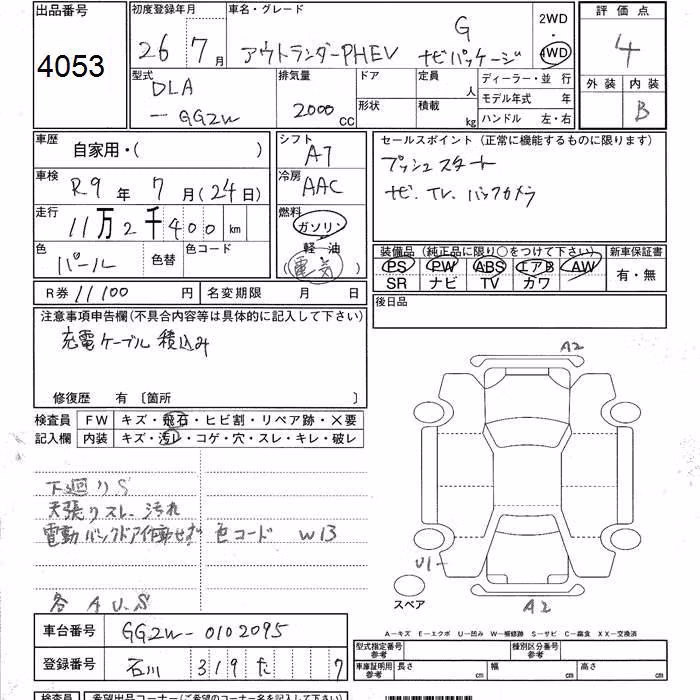 出品番号 初度登録年月 車名・グレード 2WD 評価点
4053 26年7月 アウトランダーPHEV G ナビパッケージ 4WD 4
型式 排気量 ドア 定員 ディーラー・並行 外装 内装
DLA 2000 CC 人 モデル年式 年 B
-GG2W 形状 積載 kg ハンドル 左・右
車歴 自家用・( ) シフト A7 セールスポイント(正常に機能するものに限ります)
車検 R9年7月(24日) 冷房 AAC プッシュスタート
走行 11万2千400km 燃料 ガソリン ナビ.TV.バックカメラ
色 パール 色替 色コード 軽油 装備品(純正品に限り○をつけて下さい) 新車保証書
電気 PS PW ABS エアB AW 有・無
SR ナビ TV カワ
R券 11100円 名変期限 月 日 後日品
注意事項申告欄(不具合内容等は具体的に記入して下さい)
充電ケーブル 積込み
修復歴 有 〔箇所
A2
検査員 FW キズ・飛石・ヒビ割・リペア跡・×要
記入欄 内装 キズ・汚レ・コゲ・穴・スレ・キレ・破レ
下廻りS
天張りスレ.汚れ
電動バックドア作動せず 色コード W13
U1
スペア
各 A U.S
A2
A-キズ E-エクボ U-凹み W-補修跡 S-サビ C-腐食 XX-交換済
車台番号 GG2W-0102095
型式指定番号 参考 種別区分番号 参考
登録番号 石川 319 た 7
車庫証明用 参考 長さ cm 幅 cm 高さ cm
検査員 希望出品コーナー(ご希望のコーナー名を記入